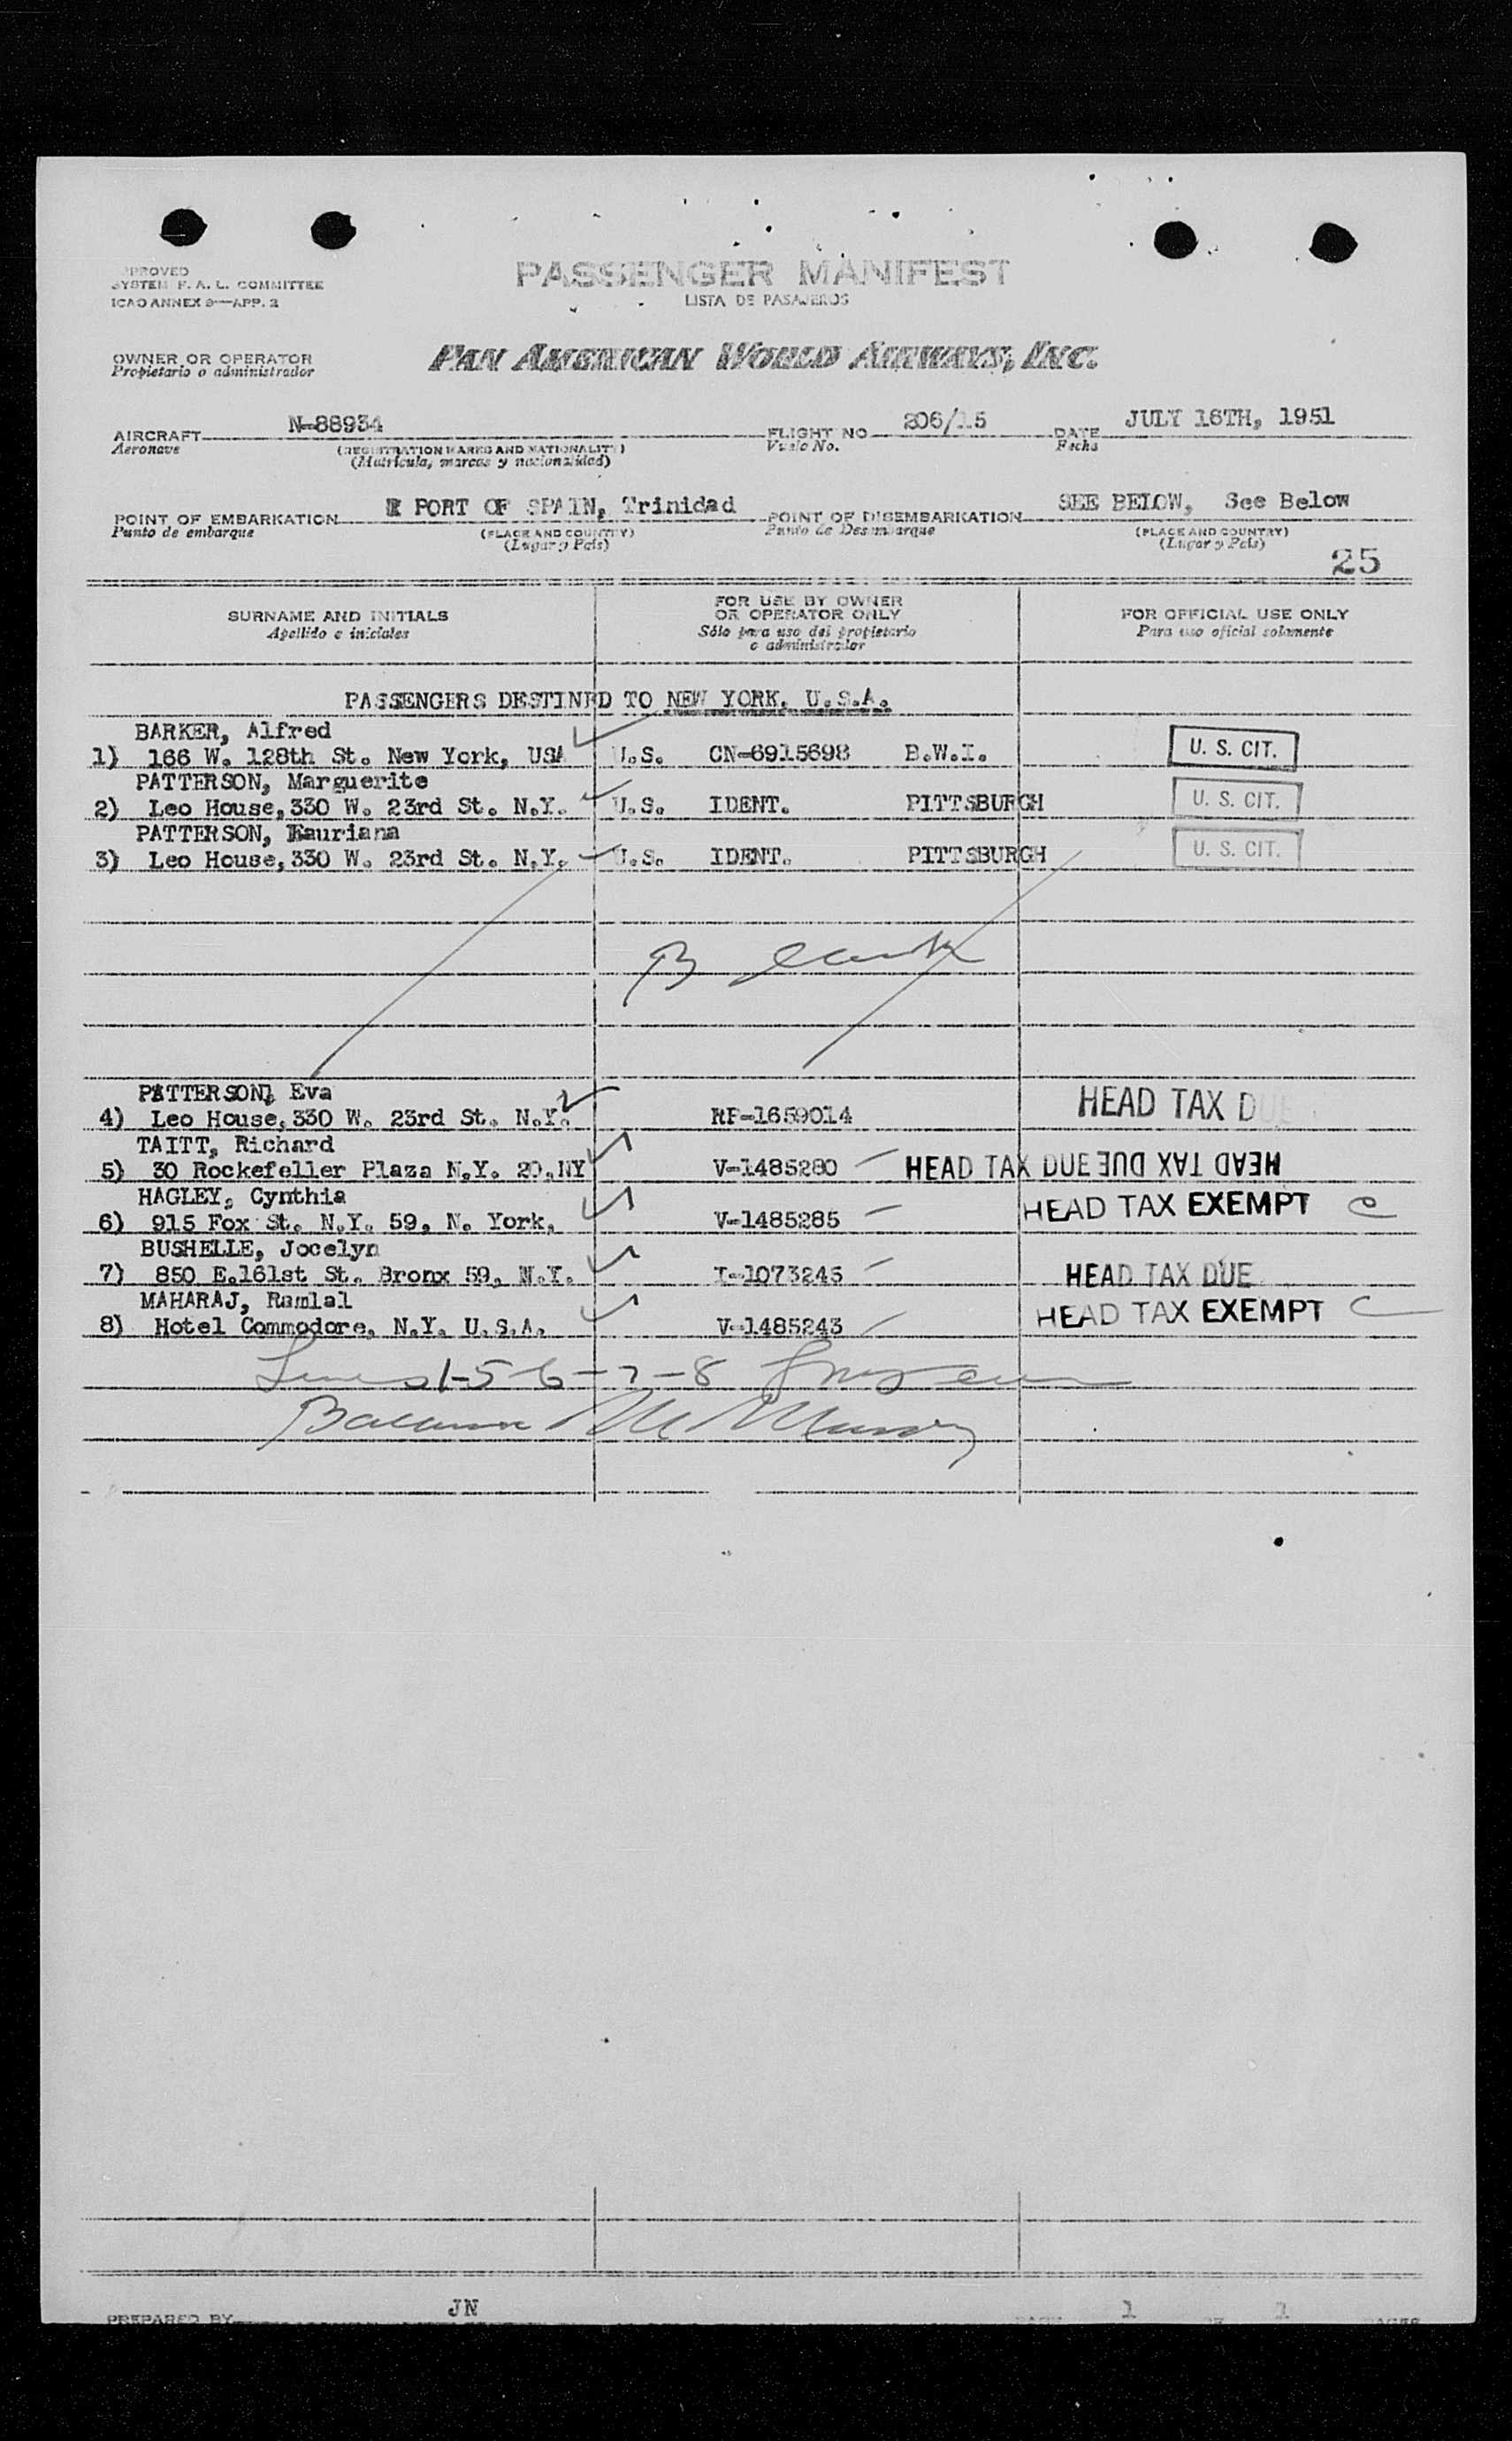 PPROVED
SYSTEM F. A. L. COMMITTEE
ICAO ANNEX 9—APP. 2
PASSENGER MANIFEST
LISTA DE PASAJEROS
OWNER OR OPERATOR
Propietario o administrador
PAN AMERICAN WORLD AIRWAYS, INC.
AIRCRAFT N-88934 FLIGHT NO 206/15 DATE JULY 16TH, 1951
Aeronave (REGISTRATION MARKS AND NATIONALITY) Vuelo No. Fecha
(Matricula, marcas y nacionalidad)
POINT OF EMBARKATION PORT OF SPAIN, Trinidad POINT OF DISEMBARKATION SEE BELOW, See Below
Punto de embarque (PLACE AND COUNTRY) Punto de Desembarque (PLACE AND COUNTRY)
(Lugar y Pais) (Lugar y Pais)
25
SURNAME AND INITIALS FOR USE BY OWNER OR OPERATOR ONLY FOR OFFICIAL USE ONLY
Apellido e iniciales Sólo para uso del propietario o administrador Para uso oficial solamente
PASSENGERS DESTINED TO NEW YORK, U.S.A.
BARKER, Alfred
1) 166 W. 128th St. New York, USA U.S. CN-6915698 B.W.I. U. S. CIT.
PATTERSON, Marguerite
2) Leo House, 330 W. 23rd St. N.Y. U.S. IDENT. PITTSBURGH U. S. CIT.
PATTERSON, Eauriana
3) Leo House, 330 W. 23rd St. N.Y. U.S. IDENT. PITTSBURGH U. S. CIT.
PATTERSON, Eva
4) Leo House, 330 W. 23rd St. N.Y. RP-1659014 HEAD TAX DUE
TAITT, Richard
5) 30 Rockefeller Plaza N.Y. 20,NY V-1485280 HEAD TAX DUE HEAD TAX DUE
HAGLEY, Cynthia
6) 915 Fox St. N.Y. 59, N. York, V-1485285 HEAD TAX EXEMPT C
BUSHELLE, Jocelyn
7) 850 E.161st St. Bronx 59, N.Y. I-1073245 HEAD TAX DUE
MAHARAJ, Ramlal
8) Hotel Commodore, N.Y. U.S.A. V-1485243 HEAD TAX EXEMPT C
Lines 1-5-6-7-8
Balance
PREPARED BY JN PAGE 1 OF 1 PAGES